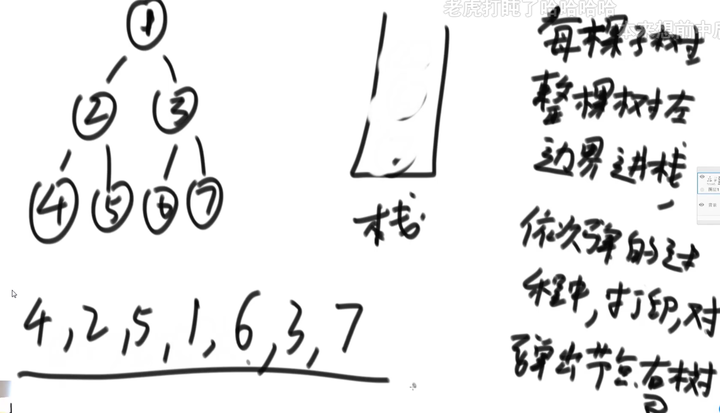 老虎打盹了哈哈哈哈
1
2 3
4 5 6 7
栈
4,2,5,1,6,3,7
每棵子树
整棵树左
边界进栈,
依次弹的过
程中,打印,对
弹出节点右树